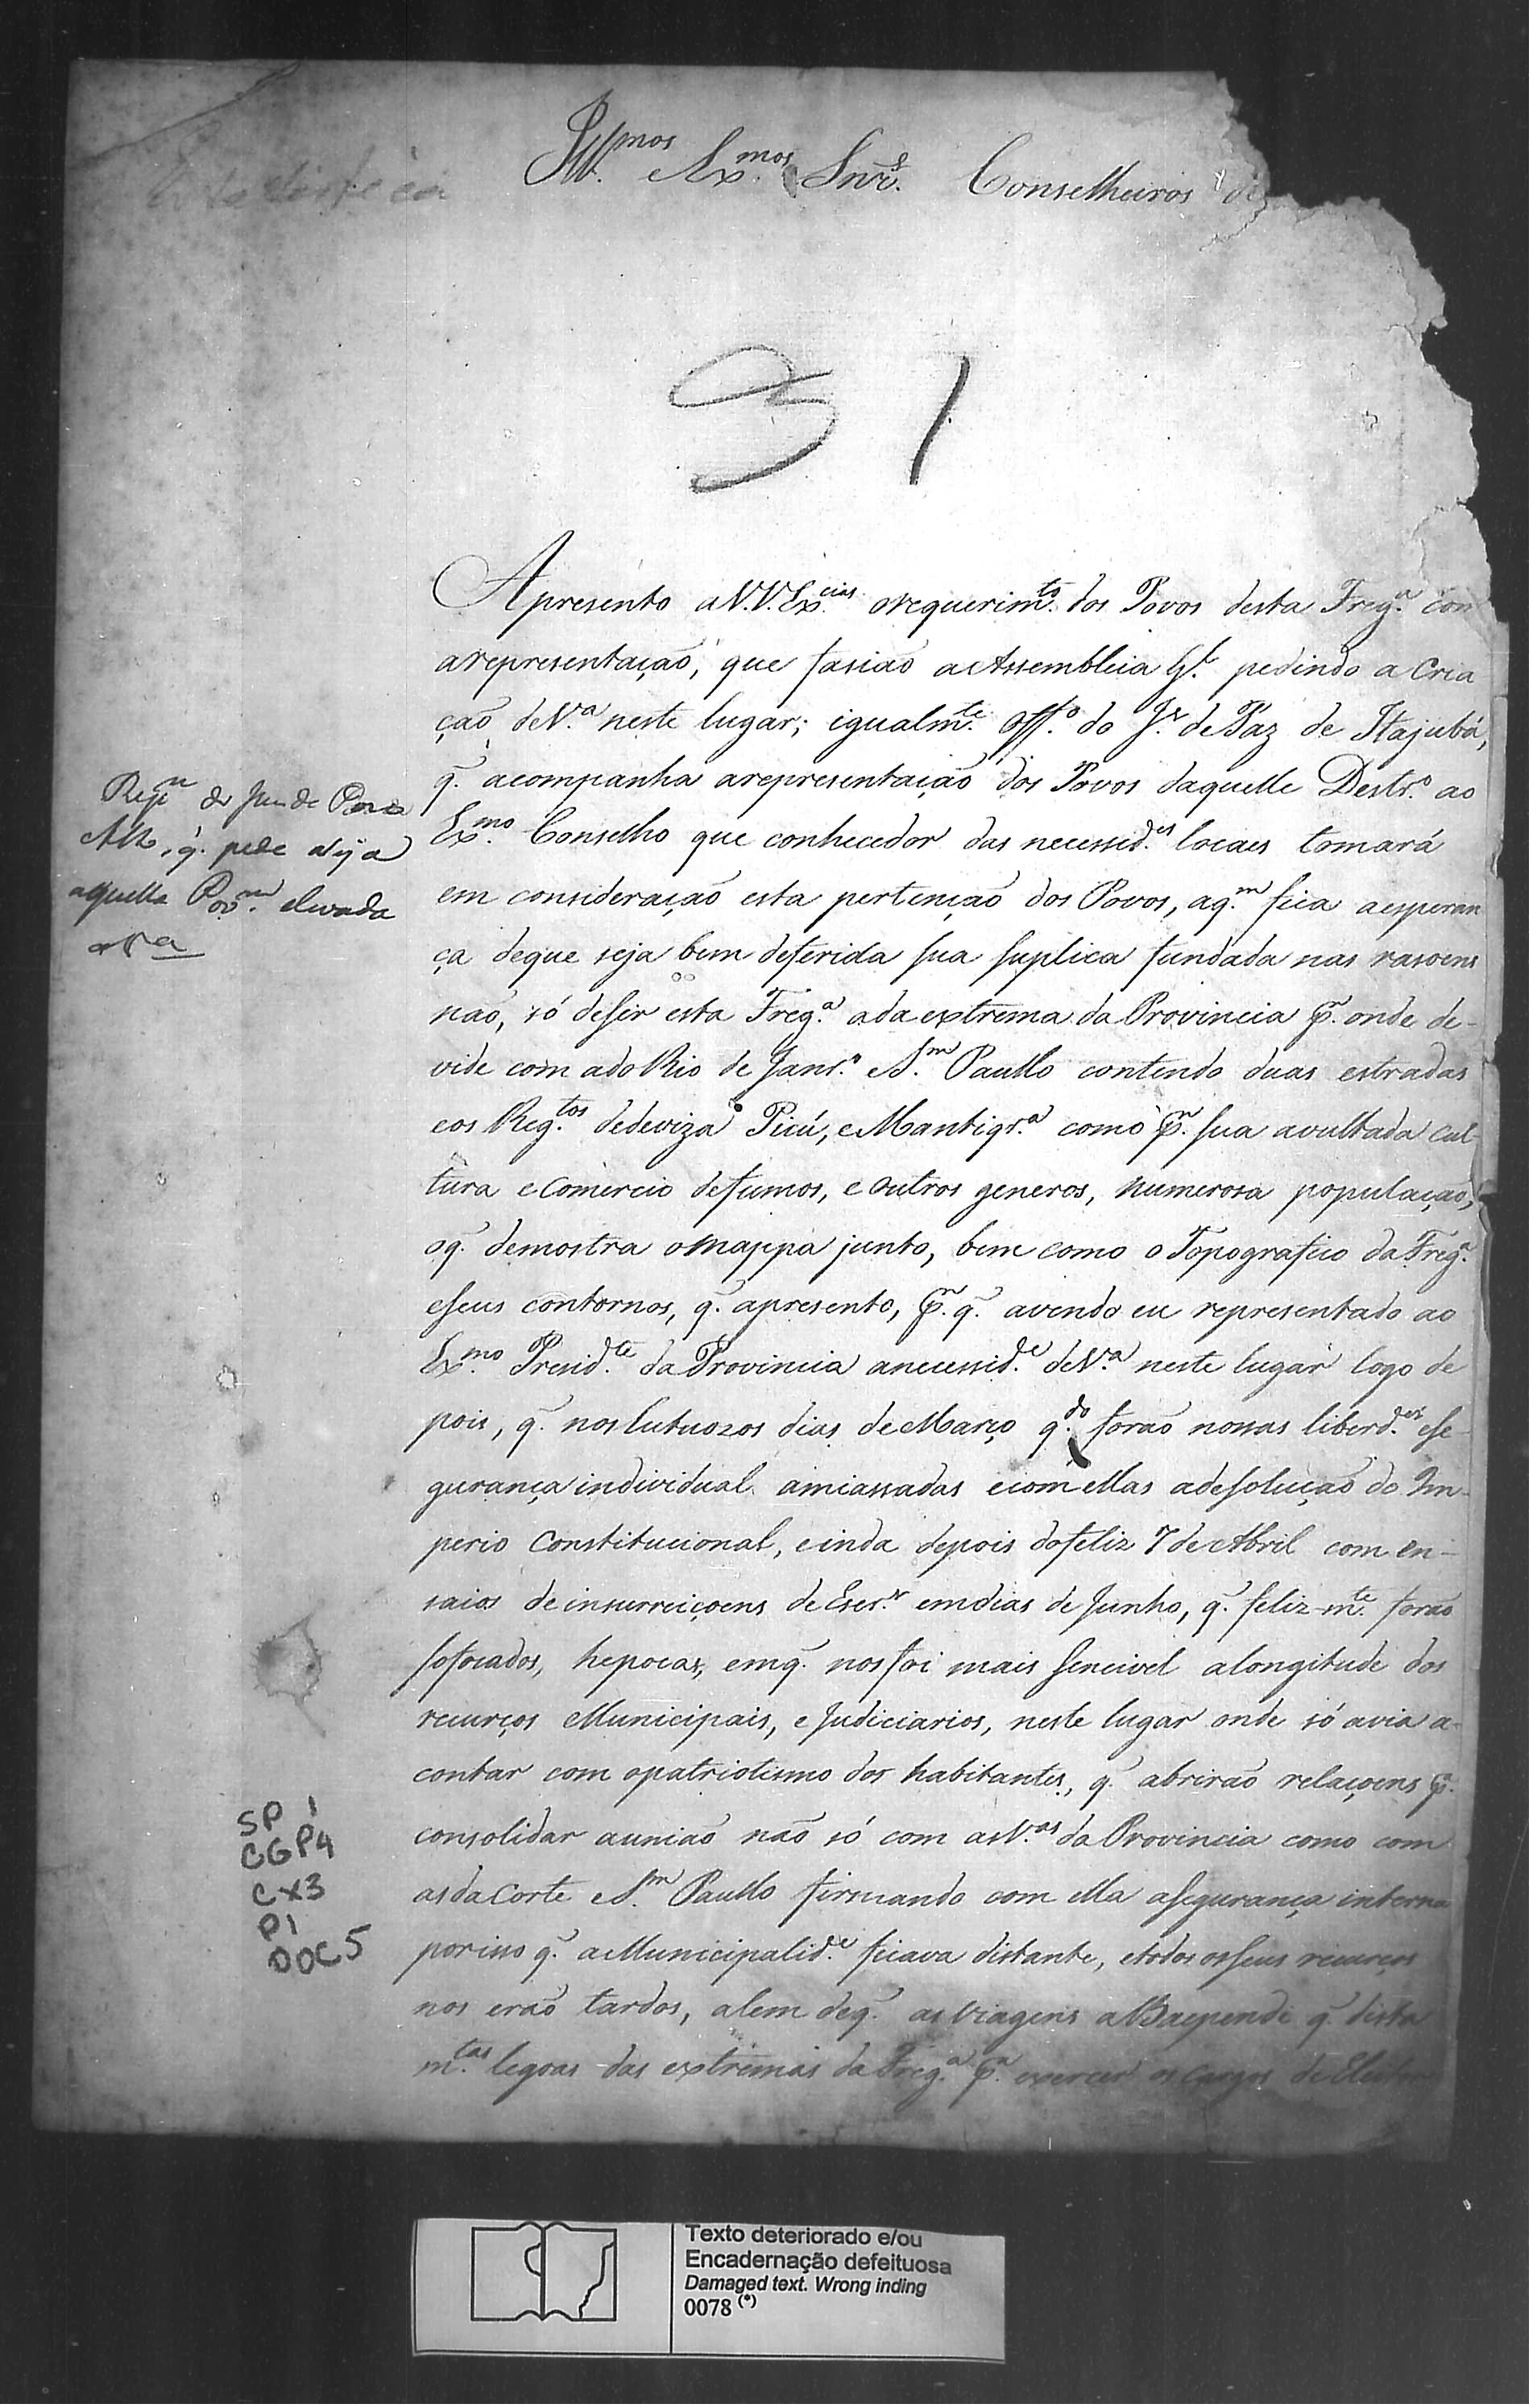 Estatistica
Ill.mos Ex.mos Snr.s Conselheiros de
31
Apresento a V.V.Ex.cias o requerim.to dos Povos desta Freg.a com
a representação, que fasião a Assembleia G.l pedindo a Crea
ção de V.a neste lugar; igualm.te Off.o do J.z de Paz de Itajubá,
q̃ acompanha a representação dos Povos daquelle Destr.o ao
Ex.mo Conselho que conhecedor das necessid.es locaes tomará
em consideração esta pertenção dos Povos, aq.m fica a esperan
ça de que seja bem deferida sua suplica fundada nas rasoens
não, só de ser esta Freg.a a da extrema da Provincia p.r onde de-
vide com a do Rio de Janr.o e S.m Paullo contendo duas estradas
e os Reg.tos de deviza Picú, e Mantiqr.a como p.r sua avultada Cul-
tura e Comercio de fumos, e outros generos, numerosa população,
o q̃ demostra o mappa junto, bem como o Topografico da Freg.a
e seus contornos, q̃ apresento, p.r q̃ avendo eu representado ao
Ex.mo Presid.te da Provincia a necessid.e de V.a neste lugar logo de
pois, q̃ nos lutuozos dias de Março q.do forão nossas liberd.es e se
gurança individual amiassadas e com ellas a desolução do Im-
perio Constitucional, e inda depois do feliz 7 de Abril com en-
saios de insurreiçoens de Escr.s em dias de Junho, q̃ feliz-m.te forão
sofocados, hepocas, em q̃ nos foi mais sencivel a longitude dos
recurços Municipais, e Judiciarios, neste lugar onde só avia a
contar com o patriotismo dos habitantes, q̃ abrirão relaçoens p.a
consolidar a união não só com as V.as da Provincia como com
as da Corte e S.m Paullo firmando com ella a segurança interna
por isso q̃ a Municipalid.e ficava distante, e todos os seus recurços
nos erão tardos, alem de q̃ as viagens a Baependi q̃ dista
m.tas legoas das extremas da Freg.a p.a exercer os Cargos de Eleitor
q̃ pede seja
aquella Pov.am elevada
a V.a
SP 1
CGP4
CX3
P1
DOC5
Texto deteriorado e/ou
Encadernação defeituosa
Damaged text. Wrong inding
0078 (*)